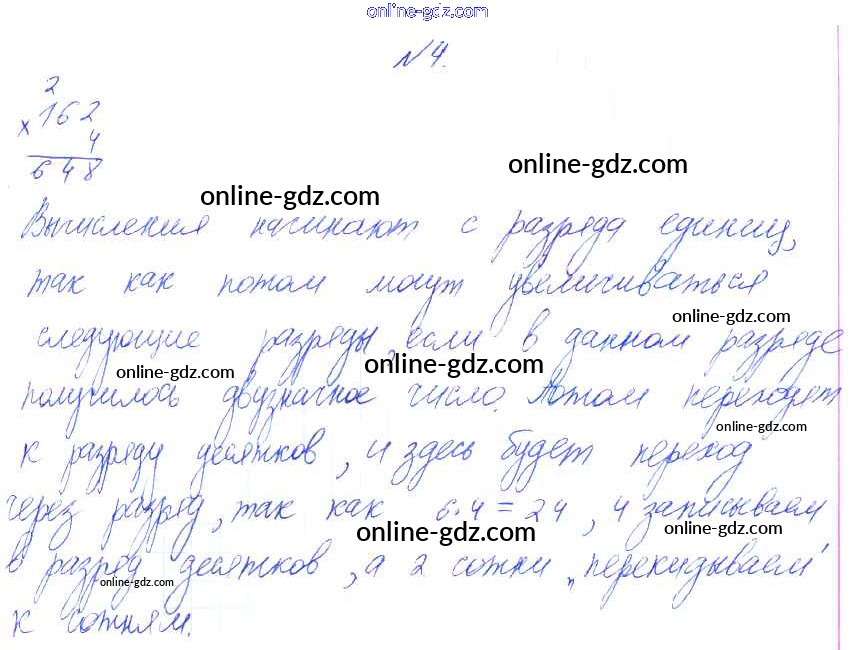 online-gdz.com
№4.
2
×162
4
648
online-gdz.com
online-gdz.com
Вычисления начинают с разряда единиц,
так как потом могут увеличиваться
online-gdz.com
следующие разряды, если в данном разряде
online-gdz.com
online-gdz.com
получилось двузначное число. Потом переходят
online-gdz.com
к разряду десятков, и здесь будет переход
через разряд, так как 6·4=24, 4 записываем
online-gdz.com
online-gdz.com
в разряд десятков, а 2 сотни „перекидываем"
online-gdz.com
к сотням.